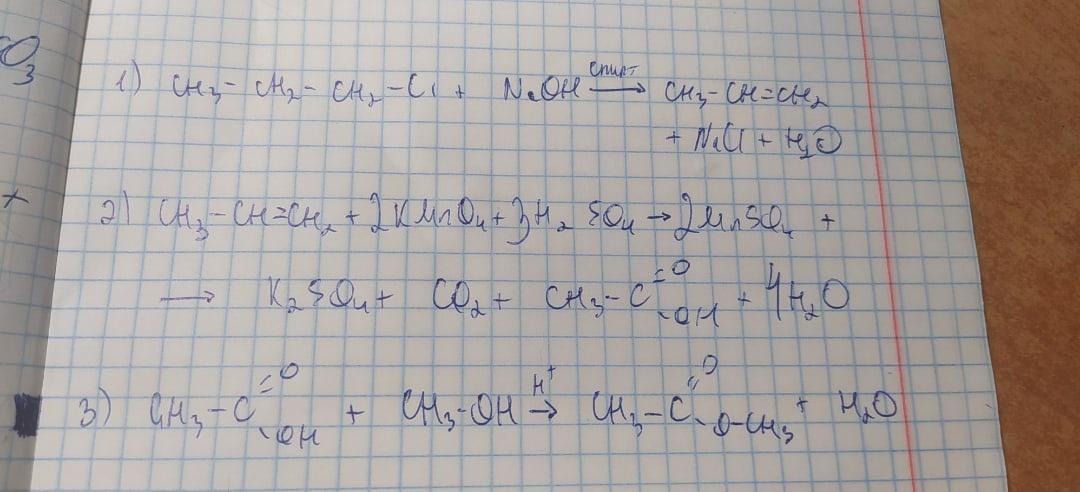 CO₃
1) CH₃ – CH₂ – CH₂ – Cl + NaOH —спирт→ CH₃ – CH = CH₂
+ NaCl + H₂O
2) CH₃ – CH = CH₂ + 2KMnO₄ + 3H₂SO₄ → 2MnSO₄ +
→ K₂SO₄ + CO₂ + CH₃ – C(=O)–OH + 4H₂O
3) CH₃ – C(=O)–OH + CH₃ – OH —H⁺→ CH₃ – C(=O)–O–CH₃ + H₂O